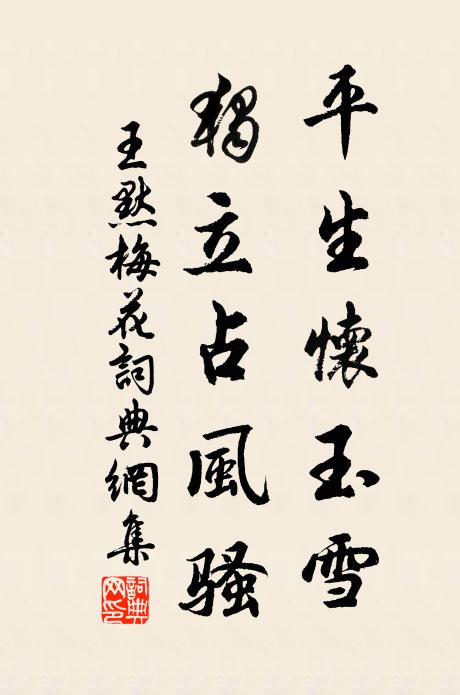 平生懷玉雪
獨立占風騷
王默梅花詞典網集
詞典網印